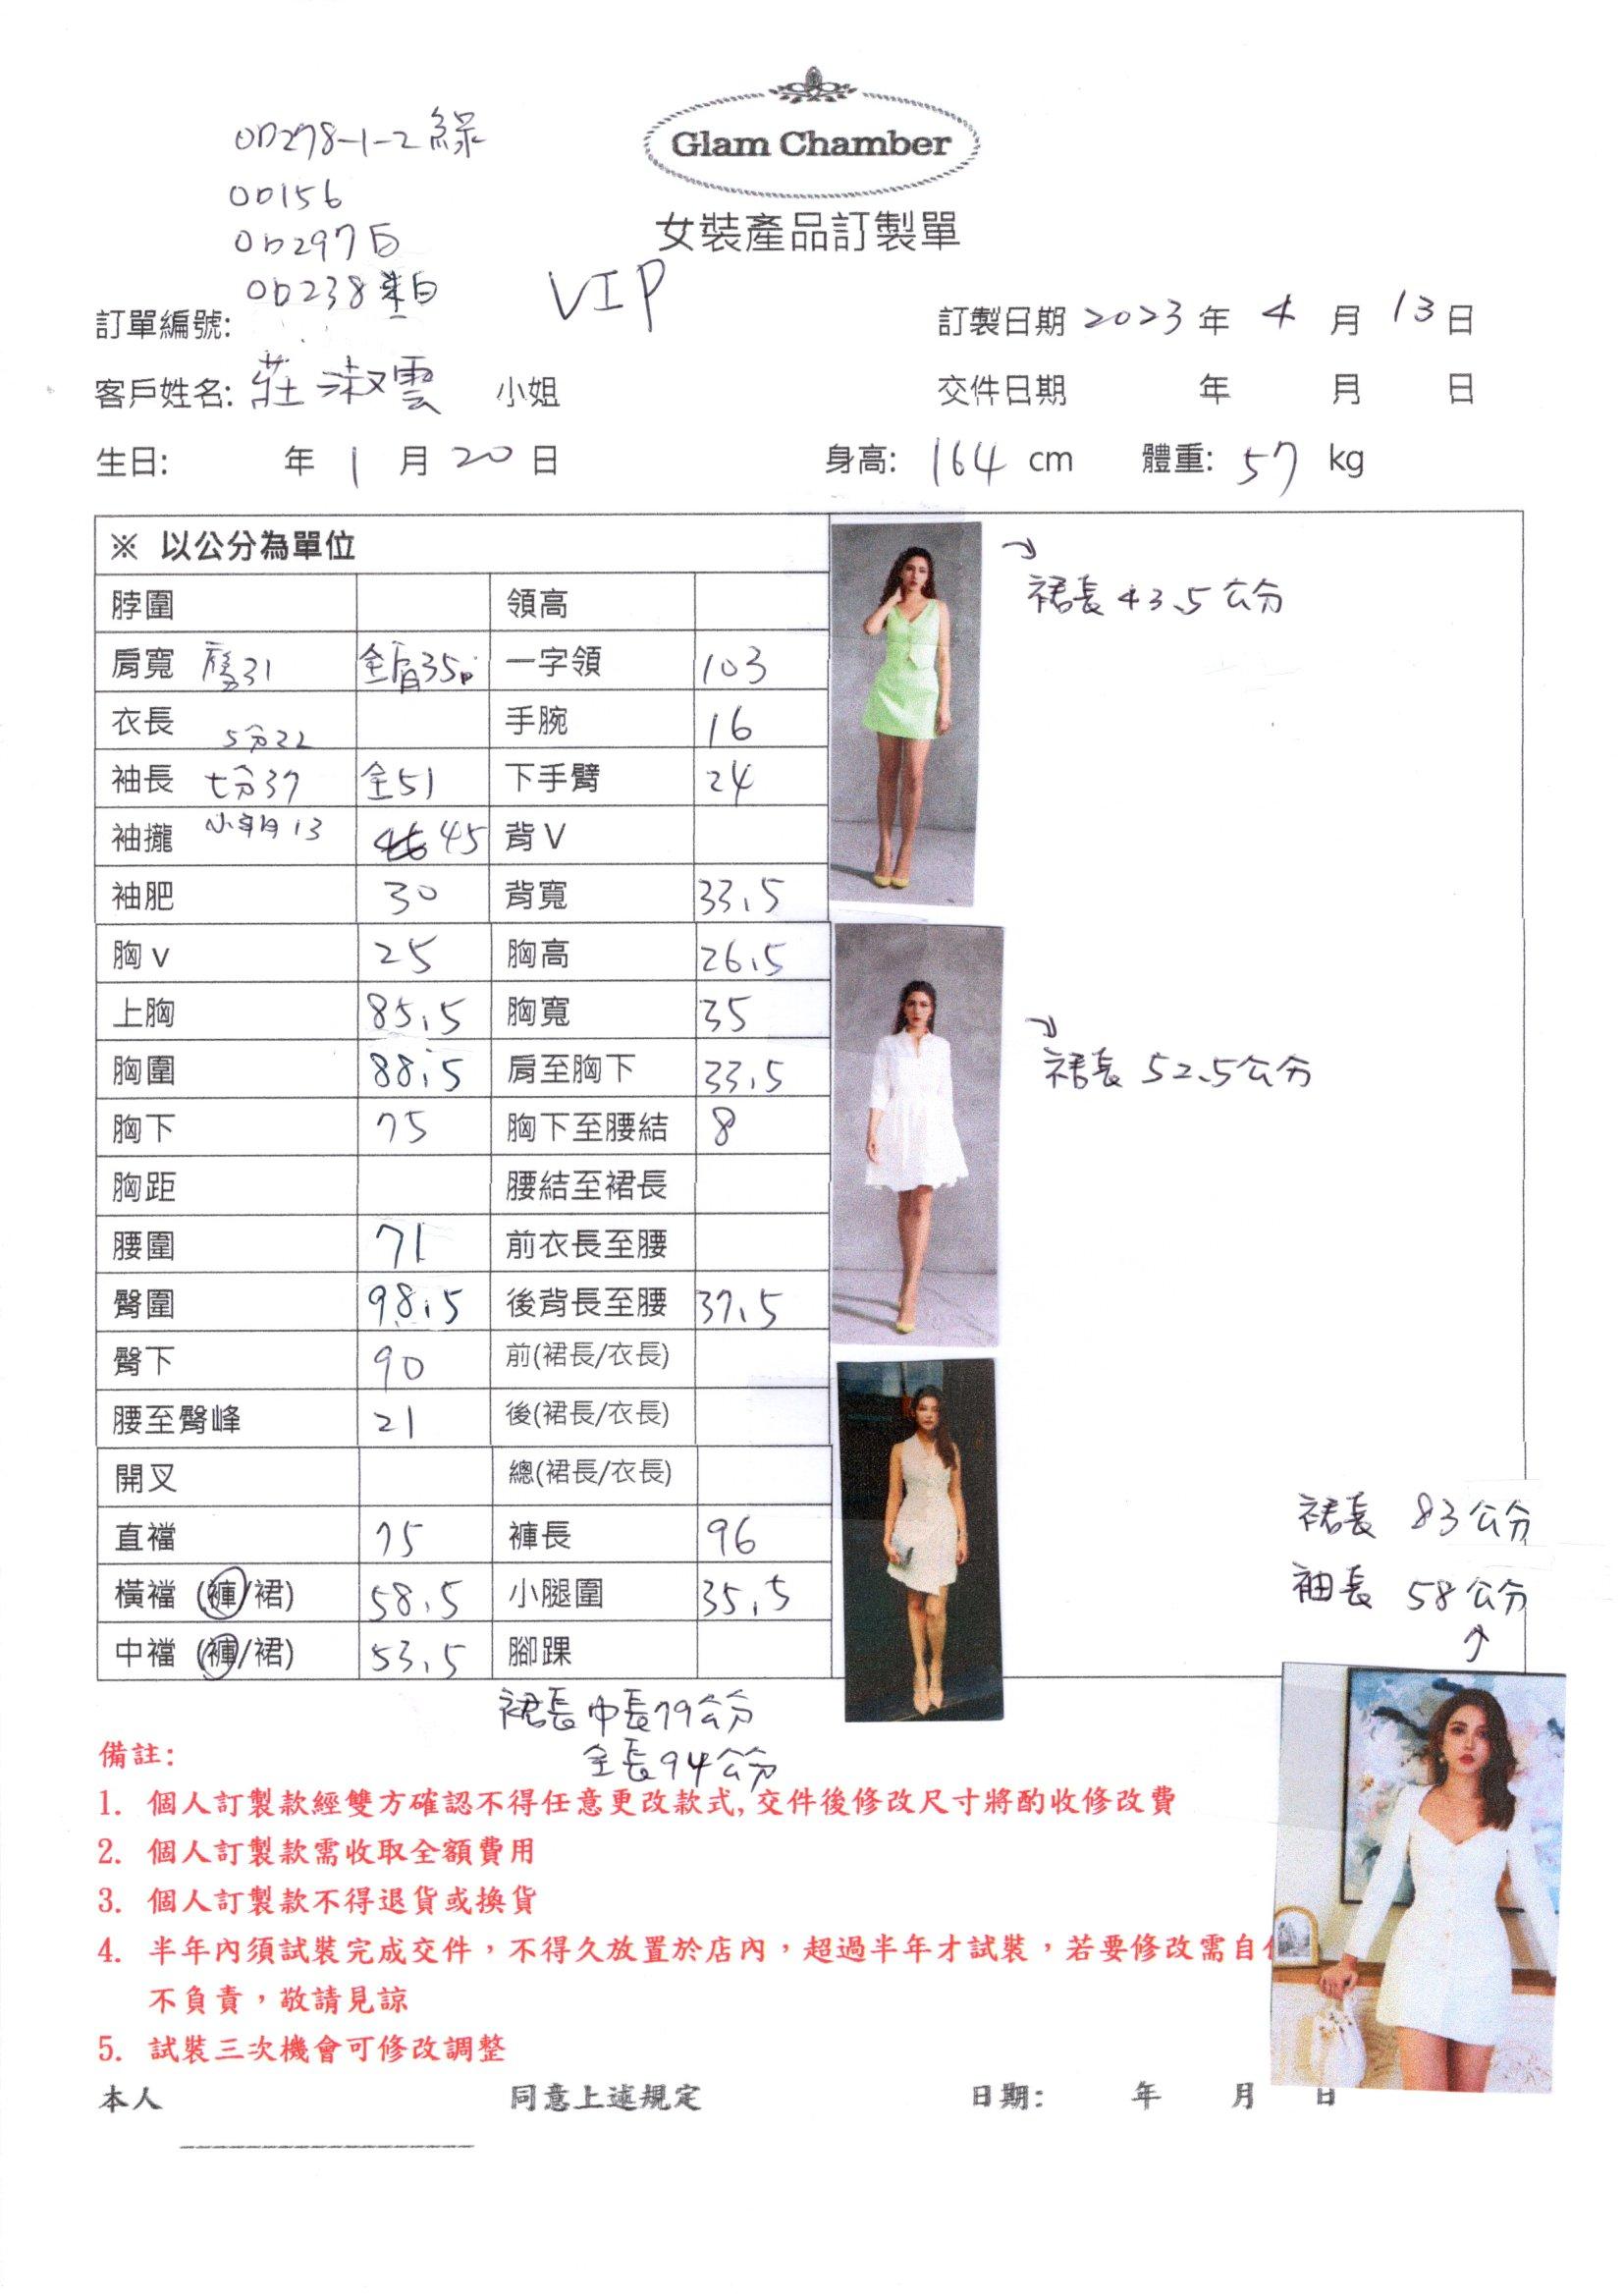 OD278-1-2 綠
OD156
OD297白
OD238
Glam Chamber
女裝產品訂製單
VIP
訂單編號:
訂製日期 2023 年 4 月 13 日
客戶姓名: 莊淑雲 小姐
交件日期 年 月 日
生日: 年 1 月 20 日 身高: 164 cm 體重: 57 kg
※ 以公分為單位
脖圍 領高
肩寬 31 全肩35 一字領 103
衣長 手腕 16
5分22
袖長 七分37 全51 下手臂 24
袖攏 13 45 背V
袖肥 30 背寬 33.5
胸v 25 胸高 26.5
上胸 85.5 胸寬 35
胸圍 88.5 肩至胸下 33.5
胸下 75 胸下至腰結 8
胸距 腰結至裙長
腰圍 71 前衣長至腰
臀圍 98.5 後背長至腰 37.5
臀下 90 前(裙長/衣長)
腰至臀峰 21 後(裙長/衣長)
開叉 總(裙長/衣長)
直襠 75 褲長 96
橫襠 (褲/裙) 58.5 小腿圍 35.5
中襠 (褲/裙) 53.5 腳踝
裙長 43.5公分
裙長 52.5公分
裙長 83公分
袖長 58公分
裙長 中長79公分
全長94公分
備註:
1. 個人訂製款經雙方確認不得任意更改款式,交件後修改尺寸將酌收修改費
2. 個人訂製款需收取全額費用
3. 個人訂製款不得退貨或換貨
4. 半年內須試裝完成交件，不得久放置於店內，超過半年才試裝，若要修改需自
不負責，敬請見諒
5. 試裝三次機會可修改調整
本人 同意上述規定 日期: 年 月 日